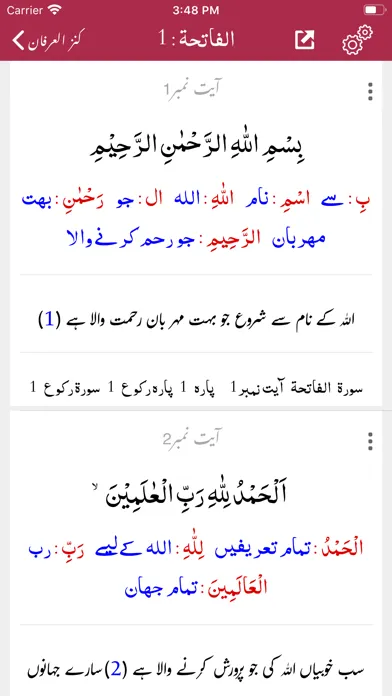 Carrier 3:48 PM
کنز العرفان الفاتحة : 1
آیت نمبر1
بِسْمِ اللهِ الرَّحْمٰنِ الرَّحِيْمِ
بِ: سے اسْمِ: نام اللهِ: الله ال: جو رَحْمٰنِ: بهت
مهربان الرَّحِيمِ: جو رحم کرنے والا
اللہ کے نام سے شروع جو بہت مہربان رحمت والا ہے (1)
سورة الفاتحة آیت نمبر1 پارہ 1 پارہ رکوع 1 سورة رکوع 1
آیت نمبر2
اَلْحَمْدُ لِلّٰهِ رَبِّ الْعٰلَمِيْنَ ۙ
الْحَمْدُ: تمام تعریفیں لِلّٰهِ: الله کے لیے رَبِّ: رب
الْعَالَمِينَ: تمام جهان
سب خوبیاں اللہ کی جو پرورش کرنے والا ہے (2) سارے جہانوں